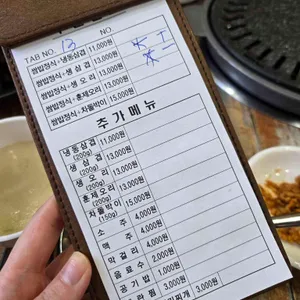 TAB NO. 13 NO.
쌈밥정식+냉동삼겹 11,000원
쌈밥정식+생 삼 겹 13,000원
쌈밥정식+생 오 리 13,000원
쌈밥정식+훈제오리 13,000원
쌈밥정식+차돌박이 15,000원
추가메뉴
냉동삼겹 (200g) 11,000원
생 삼 겹 (200g) 13,000원
생 오 리 (200g) 13,000원
훈제오리 (200g) 13,000원
차돌박이 (150g) 15,000원
소 주 4,000원
맥 주 4,000원
막 걸 리 4,000원
음 료 수 2,000원
공 기 밥 1,000원
3,000원 3,000원